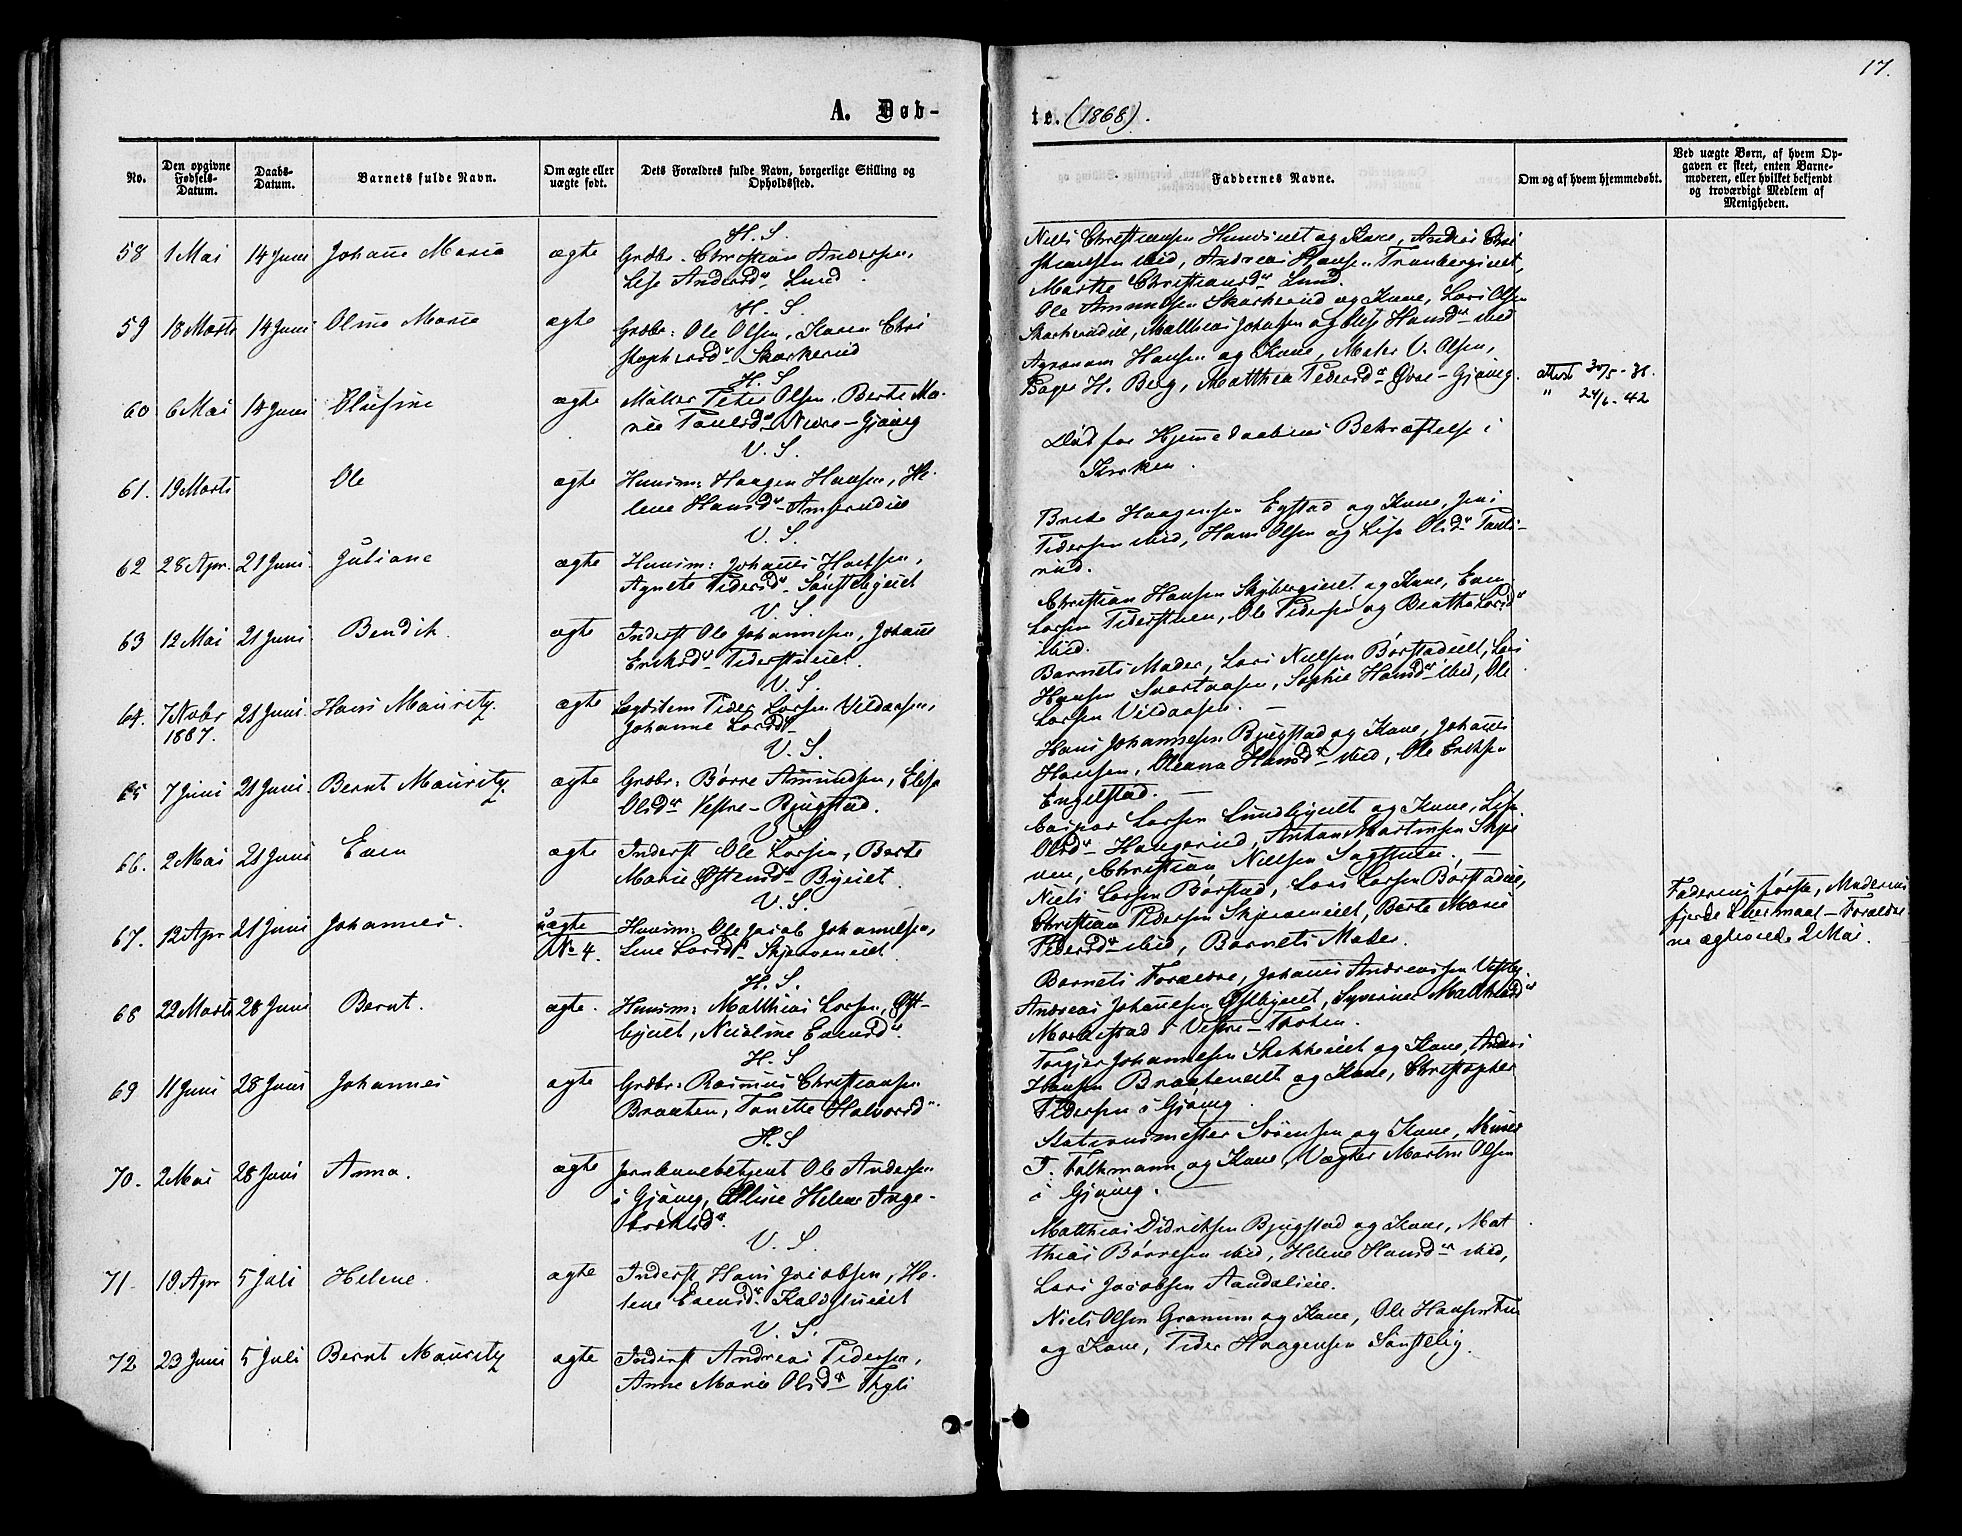 17.
A. Døb-
te. (1868).
No.
Den opgivne Fødsels-Datum.
Daabs-Datum.
Barnets fulde Navn.
Om ægte eller uægte født.
Dets Forældres fulde Navn, borgerlige Stilling og Opholdssted.
Faddernes Navne.
Om og af hvem hjemmedøbt.
Ved uægte Børn, af hvem Opgaven er skeet, enten Barnemoderen, eller hvilket bekjendt og troværdigt Medlem af Menigheden.
H. S.
58 1 Mai 14 Juni Johanne Marie ægte Grdbr. Christian Andersen,
Lise Andersdr Lund.
Niels Christiansen og Kone, Anders Chri
stiansen ibid, Andreas Hansen
Marthe Christiansdr Lund.
H. S.
59 18 Marts 14 Juni Oline Marie ægte Grdbr: Ole Olsen, Karen Chri
stophersdr Skarkerud
Ole Amundsen Skarkerud og Kone, Lars Olsen
Matthias Johansen og Lise Hansdr ibid
H. S
60 6 Mai 14 Juni Olufine ægte Møller Peter Olsen, Berte Ma-
rie Paulsd Nedre-Gjøvig
Agronom Hansen og Kone, Maler V. Olsen,
Bager H. Berg, Matthea Pedersdr Øvre-Gjøvig.
Attest 30/5-38.
" 24/6-42
V. S.
61. 19 Marts Ole ægte Huusm: Haagen Hansen, He-
lene Hansdr
Død før Hjemmedaabens Bekræftelse i
Kirken.
V. S.
62 28 Apr. 21 Juni. Juliane ægte Huusm: Johannes
Agnete Pedersd
Haagensen Egstad og Kone, Jens
Pedersen ibid, Hans Olsen og Lise Olsdr Pauls-
rud.
V. S
63 12 Mai 21 Juni Bendik. ægte Inderst Ole Johannesen, Johanne
Eriksdr
Christian Hansen og Kone, Even
Larsen Pederstuen, Ole Pedersen og Beathe Larsdr
ibid.
V. S.
64. 7 Novbr 1867. 21 Juni. Hans Mauritz. ægte Lægdslem Peder Larsen Vildaasen,
Johanne Larsd
Barnets Moder, Lars Nielsen Lars
Hansen Svartaasen, Sophie Hansdr ibid, Ole
Larsen Vildaasen. —
V. S.
65 7 Juni 21 Juni. Bernt Mauritz. ægte Grdbr: Børre Amundsen, Elise
Olsdr Vestre-Bjugstad.
Hans Johannesen Bjugstad og Kone, Johannes
Hansen, Oleana Hansdr ibid, Ole Eriksen
Engelstad. —
V. S.
66. 2 Mai 21 Juni Even ægte Inderst Ole Larsen, Berte
Marie Østensd Byeiet
Caspar Larsen og Kone, Lise
Olsdr Haugerud, Anton Martinsen Skjer
ven, Christian Nielsen Sagstuen. —
V. S.
67. 12 Apr 21 Juni Johannes. uægte
No 4. Huusm: Ole Jacob Johannesen,
Lene Larsd Skjerveneiet
Niels Larsen Børstad, Lars Larsen
Christian Pedersen Skjerveneiet, Berte Marie
Pedersdr ibid, Barnets Moder.
Faderens første, Moderens
fjerde Leiermaal — Forældre
ne ægteviede 2 Mai.
H. S.
68 22 Marts 28 Juni Bernt. ægte. Huusm: Matthias Larsen, Øst-
byeiet, Nicoline Evensdr.
Barnets Forældre, Johannes Andreassen
Andreas Johannesen Østbyeiet, Syverine Matthiasdr
i Vestre-Thoten.
H. S
69 11 Juni 28 Juni Johannes ægte Grdbr: Rasmus Christiansen
Braaten, Tonette Halvorsdr.
Torgjer Johannesen og Kone, Anders
Hansen Braateneiet og Kone, Christopher
Pedersen i Gjøvig.
H. S
70. 2 Mai 28 Juni Anna. ægte Jernbanebetjent Ole Andersen
i Gjøvig, Eline Helene Inge-
brektsdr.
Stationsmester Sørensen og Kone,
T. Folkmann og Kone, Vægter Martin Olsen
i Gjøvig. —
V. S.
71. 19 Apr 5 Juli Helene. ægte Inderst Hans Jacobsen, He-
lene Evensdr
Matthias Didriksen Bjugstad og Kone, Mat
thias Børresen ibid, Helene Hansdr ibid,
Lars Jacobsen
V. S.
72 23 Juni 5 Juli Bernt Mauritz ægte Inderst Andreas Pedersen,
Anne Marie Olsdr
Niels Olsen Granum og Kone, Ole Hansen
og Kone, Peder Haagensen